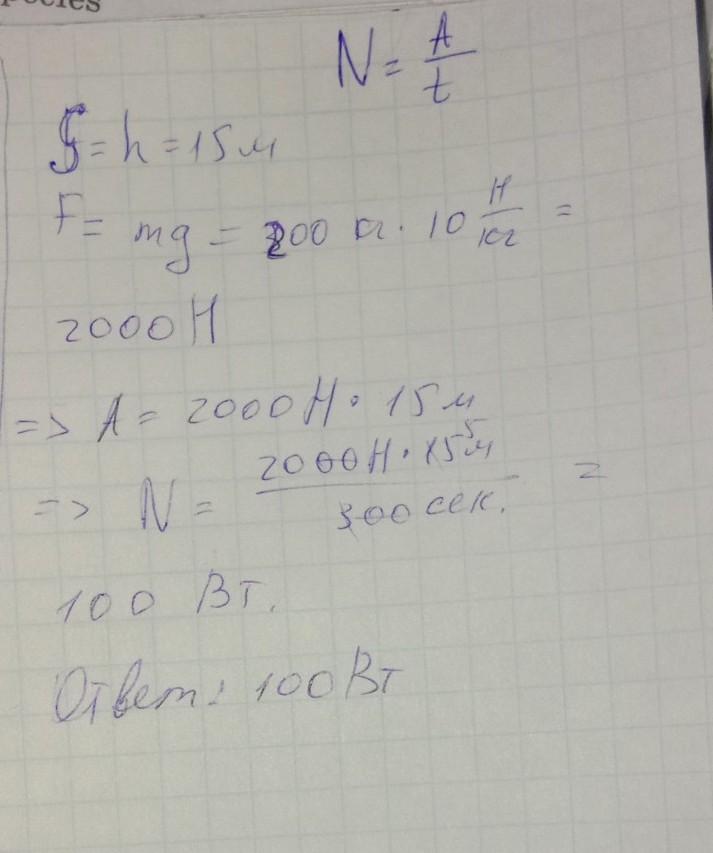 pocles
N = A/t
S = h = 15 м
F = mg = 200 кг · 10 Н/кг =
2000 Н
=> A = 2000 Н · 15 м
=> N = 2000 Н · 15 5 м / 300 сек. =
100 Вт.
Ответ: 100 Вт